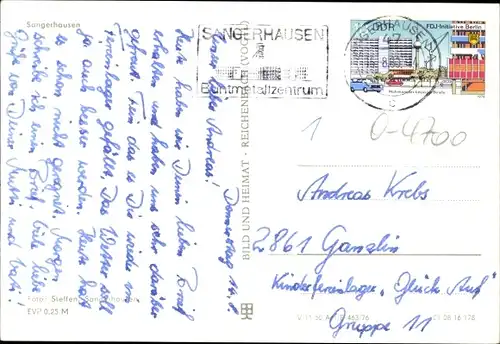 Sangerhausen
Donnerstag 14.8.
Mein lieber Andreas!
Heute haben wir Deinen lieben Brief
erhalten und haben uns sehr darüber
gefreut. Fein das es Dir wieder im
Ferienlager gefällt. Das Wetter soll
ja auch besser werden. Heute hat
es schon mal geregnet. Morgen
schreibe ich einen Brief. Viele liebe
Grüße von Deiner Mutti und Vati!
Foto: Steffen, Sangerhausen
EVP 0,25 M
BILD UND HEIMAT · REICHENBACH (VOGTL)
SANGERHAUSEN
Buntmetallzentrum
SANGERHAUSEN
DDR
FDJ-Initiative Berlin
1
0-4700
Andreas Krebs
2861 Ganzlin
Kinderferienlager „Glück Auf"
Gruppe 11